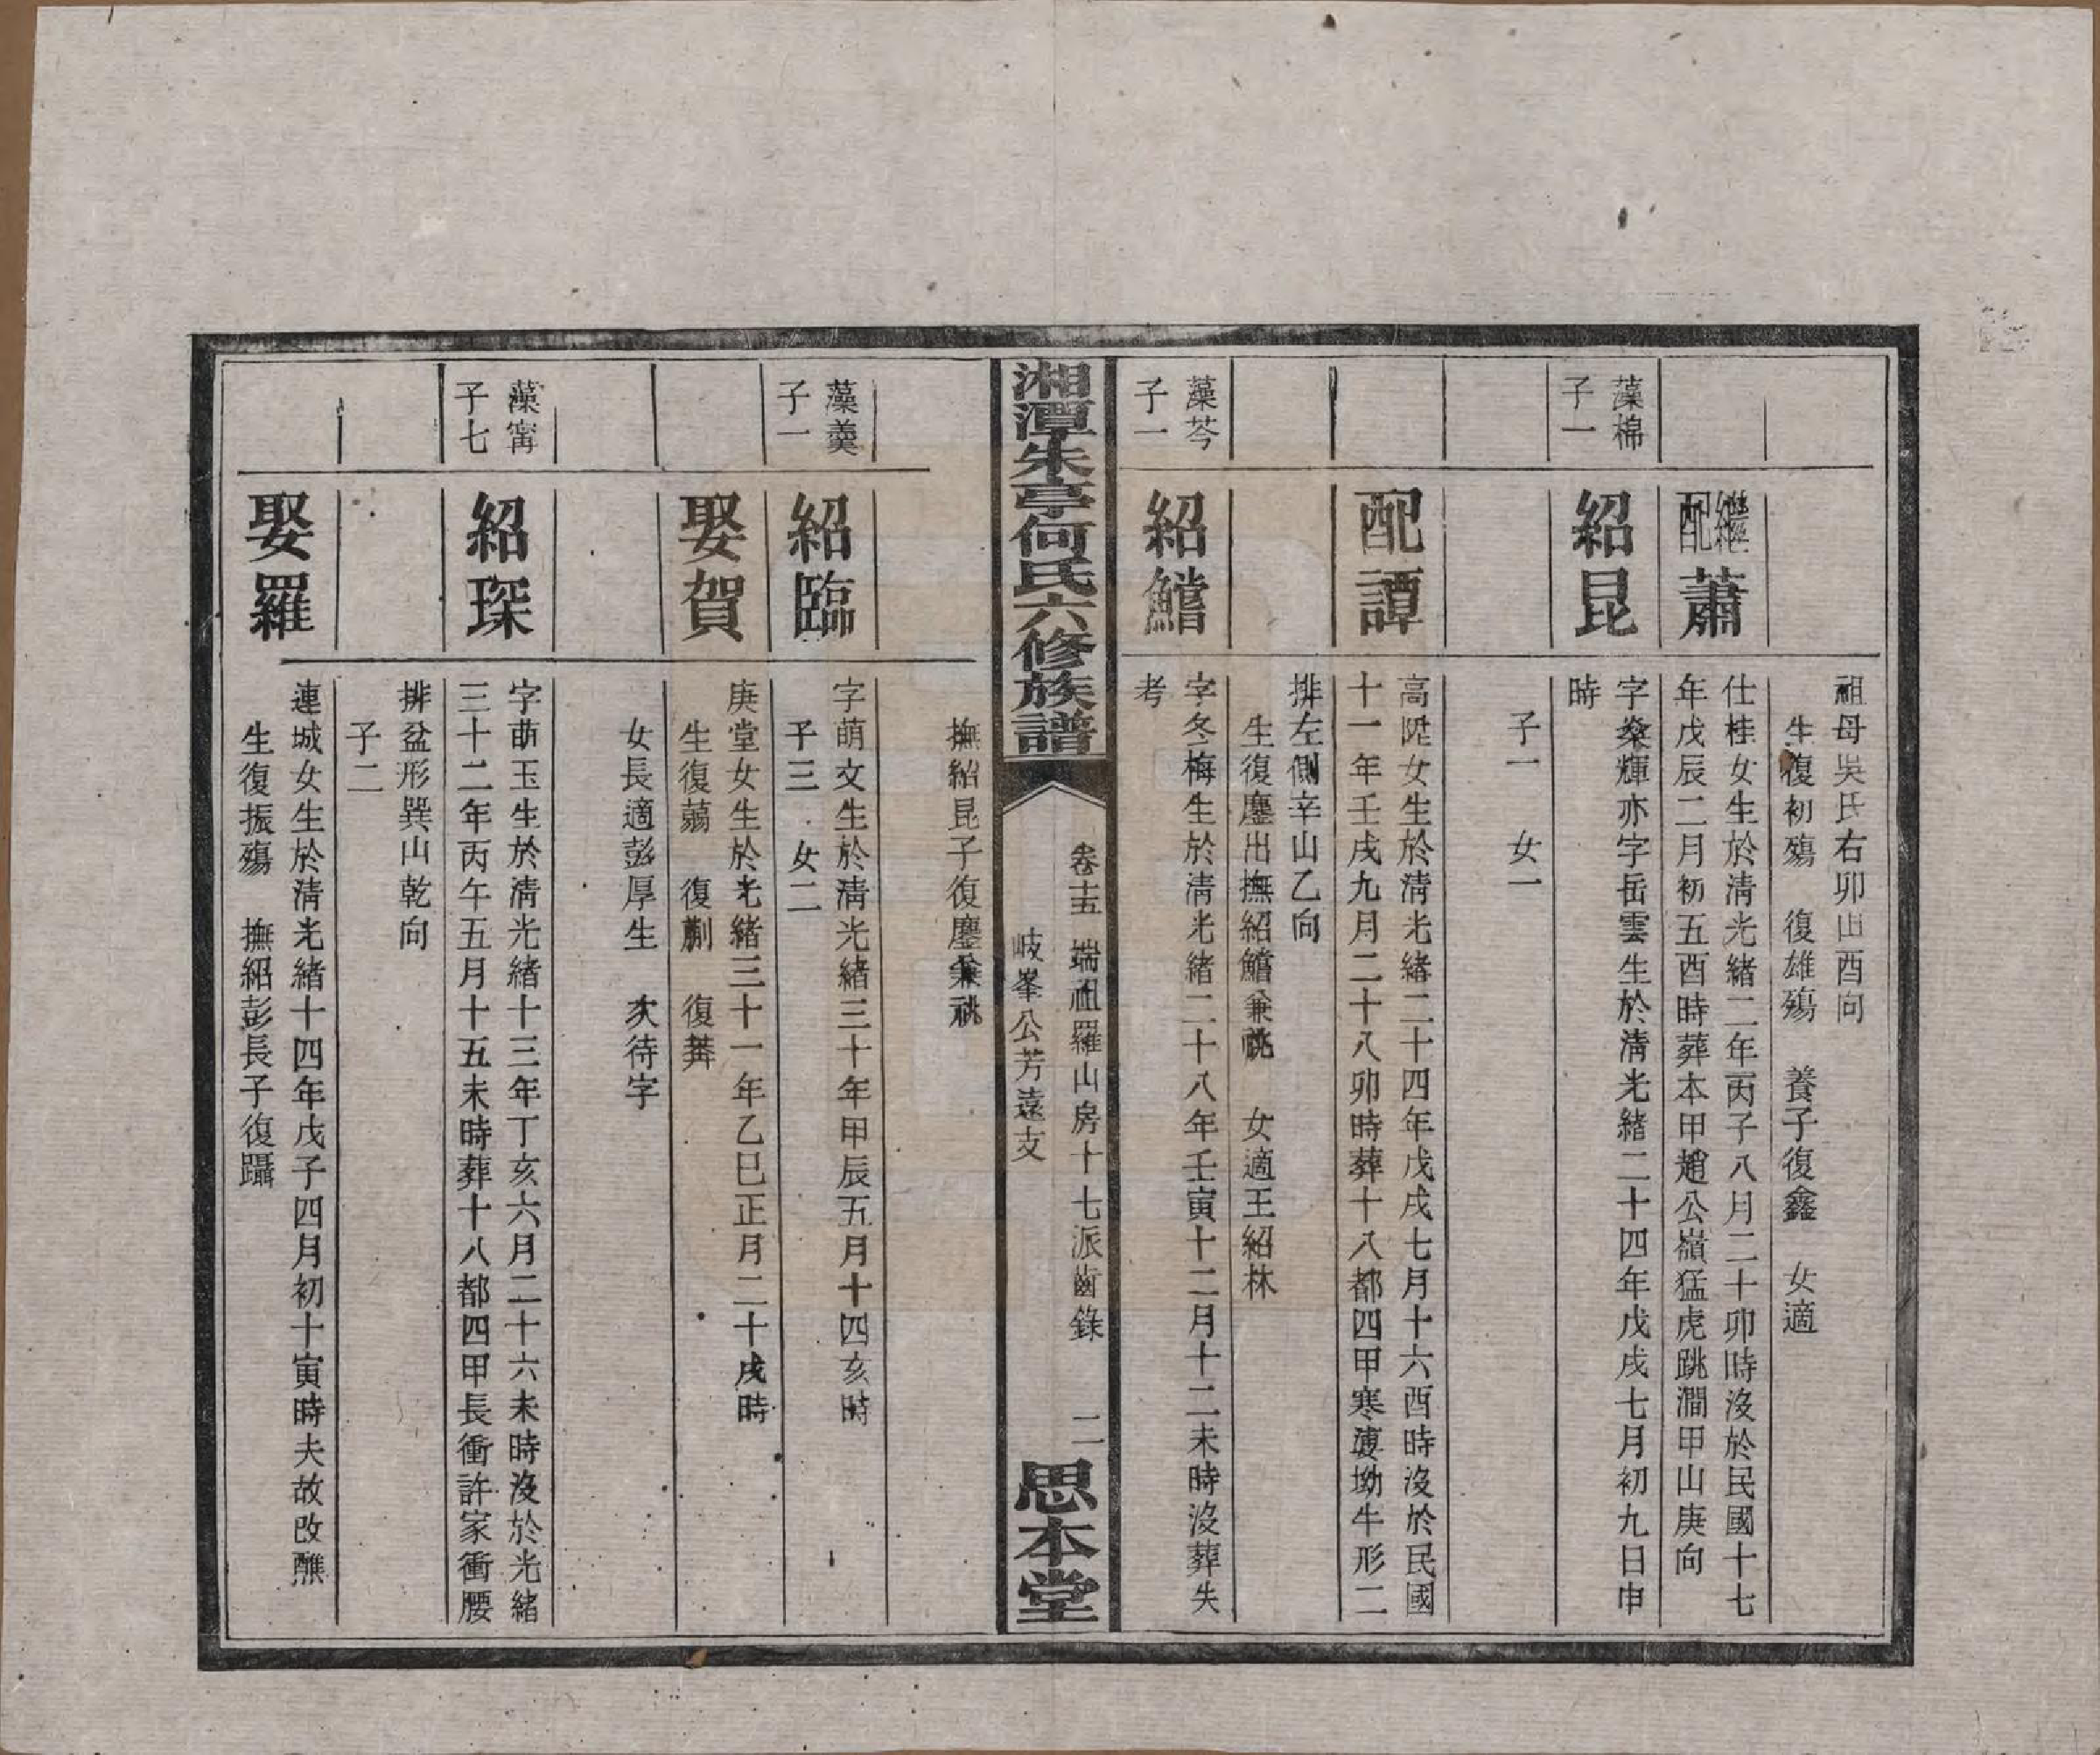 祖母吳氏右卯山酉向
生復初殤　復雄殤　養子復鑫　女適
繼配蕭
仕桂女生於清光緒二年丙子八月二十卯時沒於民國十七
年戊辰二月初五酉時葬本甲趙公嶺猛虎跳澗甲山庚向
藻棉
子一
紹昆
字燊輝亦字岳雲生於清光緒二十四年戊戌七月初九日申
時
子一　女一
配譚
高陞女生於清光緒二十四年戊戌七月十六酉時沒於民國
十一年壬戌九月二十八卯時葬十八都四甲寒婆坳牛形二
排左側辛山乙向
生復鏖出撫紹鱛兼祧　女適王紹林
藻芩
子一
紹鱛
字冬梅生於清光緒二十八年壬寅十二月十二未時沒葬失
考
湘潭朱亭何氏六修族譜
卷十五　端祖羅山房十七派齒錄　二
岐峯公芳遠支
思本堂
撫紹昆子復鏖兼祧
藻羹
子一
紹臨
字萌文生於清光緒三十年甲辰五月十四亥時
子三　女二
娶賀
庚堂女生於光緒三十一年乙巳正月二十戌時
生復蒻　復蒯　復䓫
女長適彭厚生　次待字
藻甯
子七
紹琛
字萌玉生於清光緒十三年丁亥六月二十六未時沒於光緒
三十二年丙午五月十五未時葬十八都四甲長衝許家衝腰
排盆形巽山乾向
子二
娶羅
連城女生於清光緒十四年戊子四月初十寅時夫故改醮
生復振殤　撫紹彭長子復躡